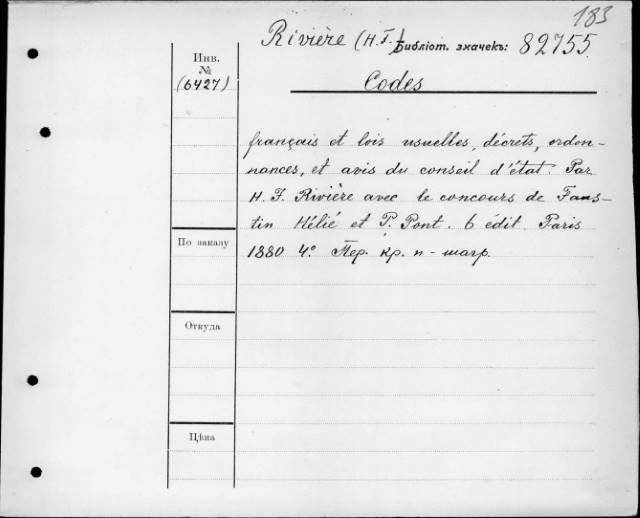 183
Rivière (H.F.) Библіот. значекъ: 82755
Инв.
№
(6427)
Codes
français et lois usuelles, décrets, ordon-
nances, et avis du conseil d'état. Par
H. F. Rivière avec le concours de Faus-
tin Hélié et P. Pont. 6 édit. Paris
1880 4º. Пер. кр. п-шагр.
По заказу
Откуда
Цѣна